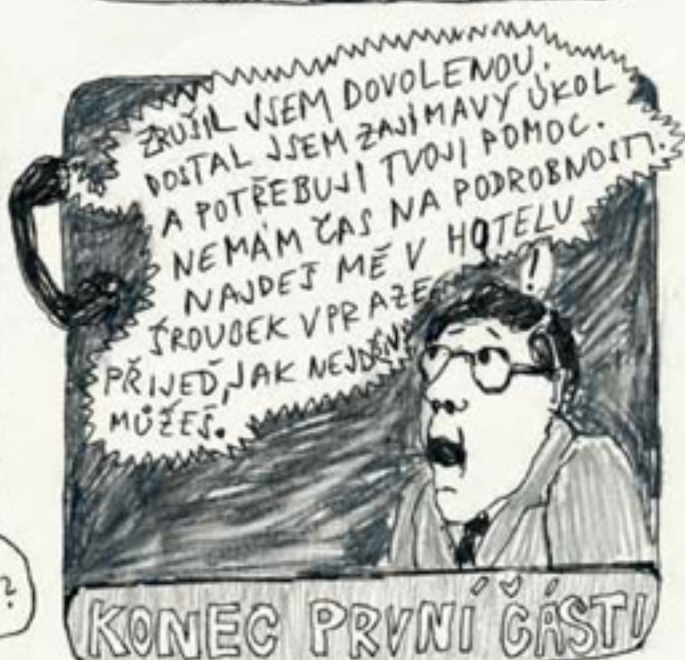 ZRUŠIL JSEM DOVOLENOU.
DOSTAL JSEM ZAJÍMAVÝ ÚKOL
A POTŘEBUJI TVOJI POMOC.
NEMÁM ČAS NA PODROBNOSTI.
NAJDEŠ MĚ V HOTELU
ŠROUBEK V PRAZE
PŘIJEĎ, JAK NEJDŘÍV
MŮŽEŠ.
!
?
KONEC PRVNÍ ČÁSTI